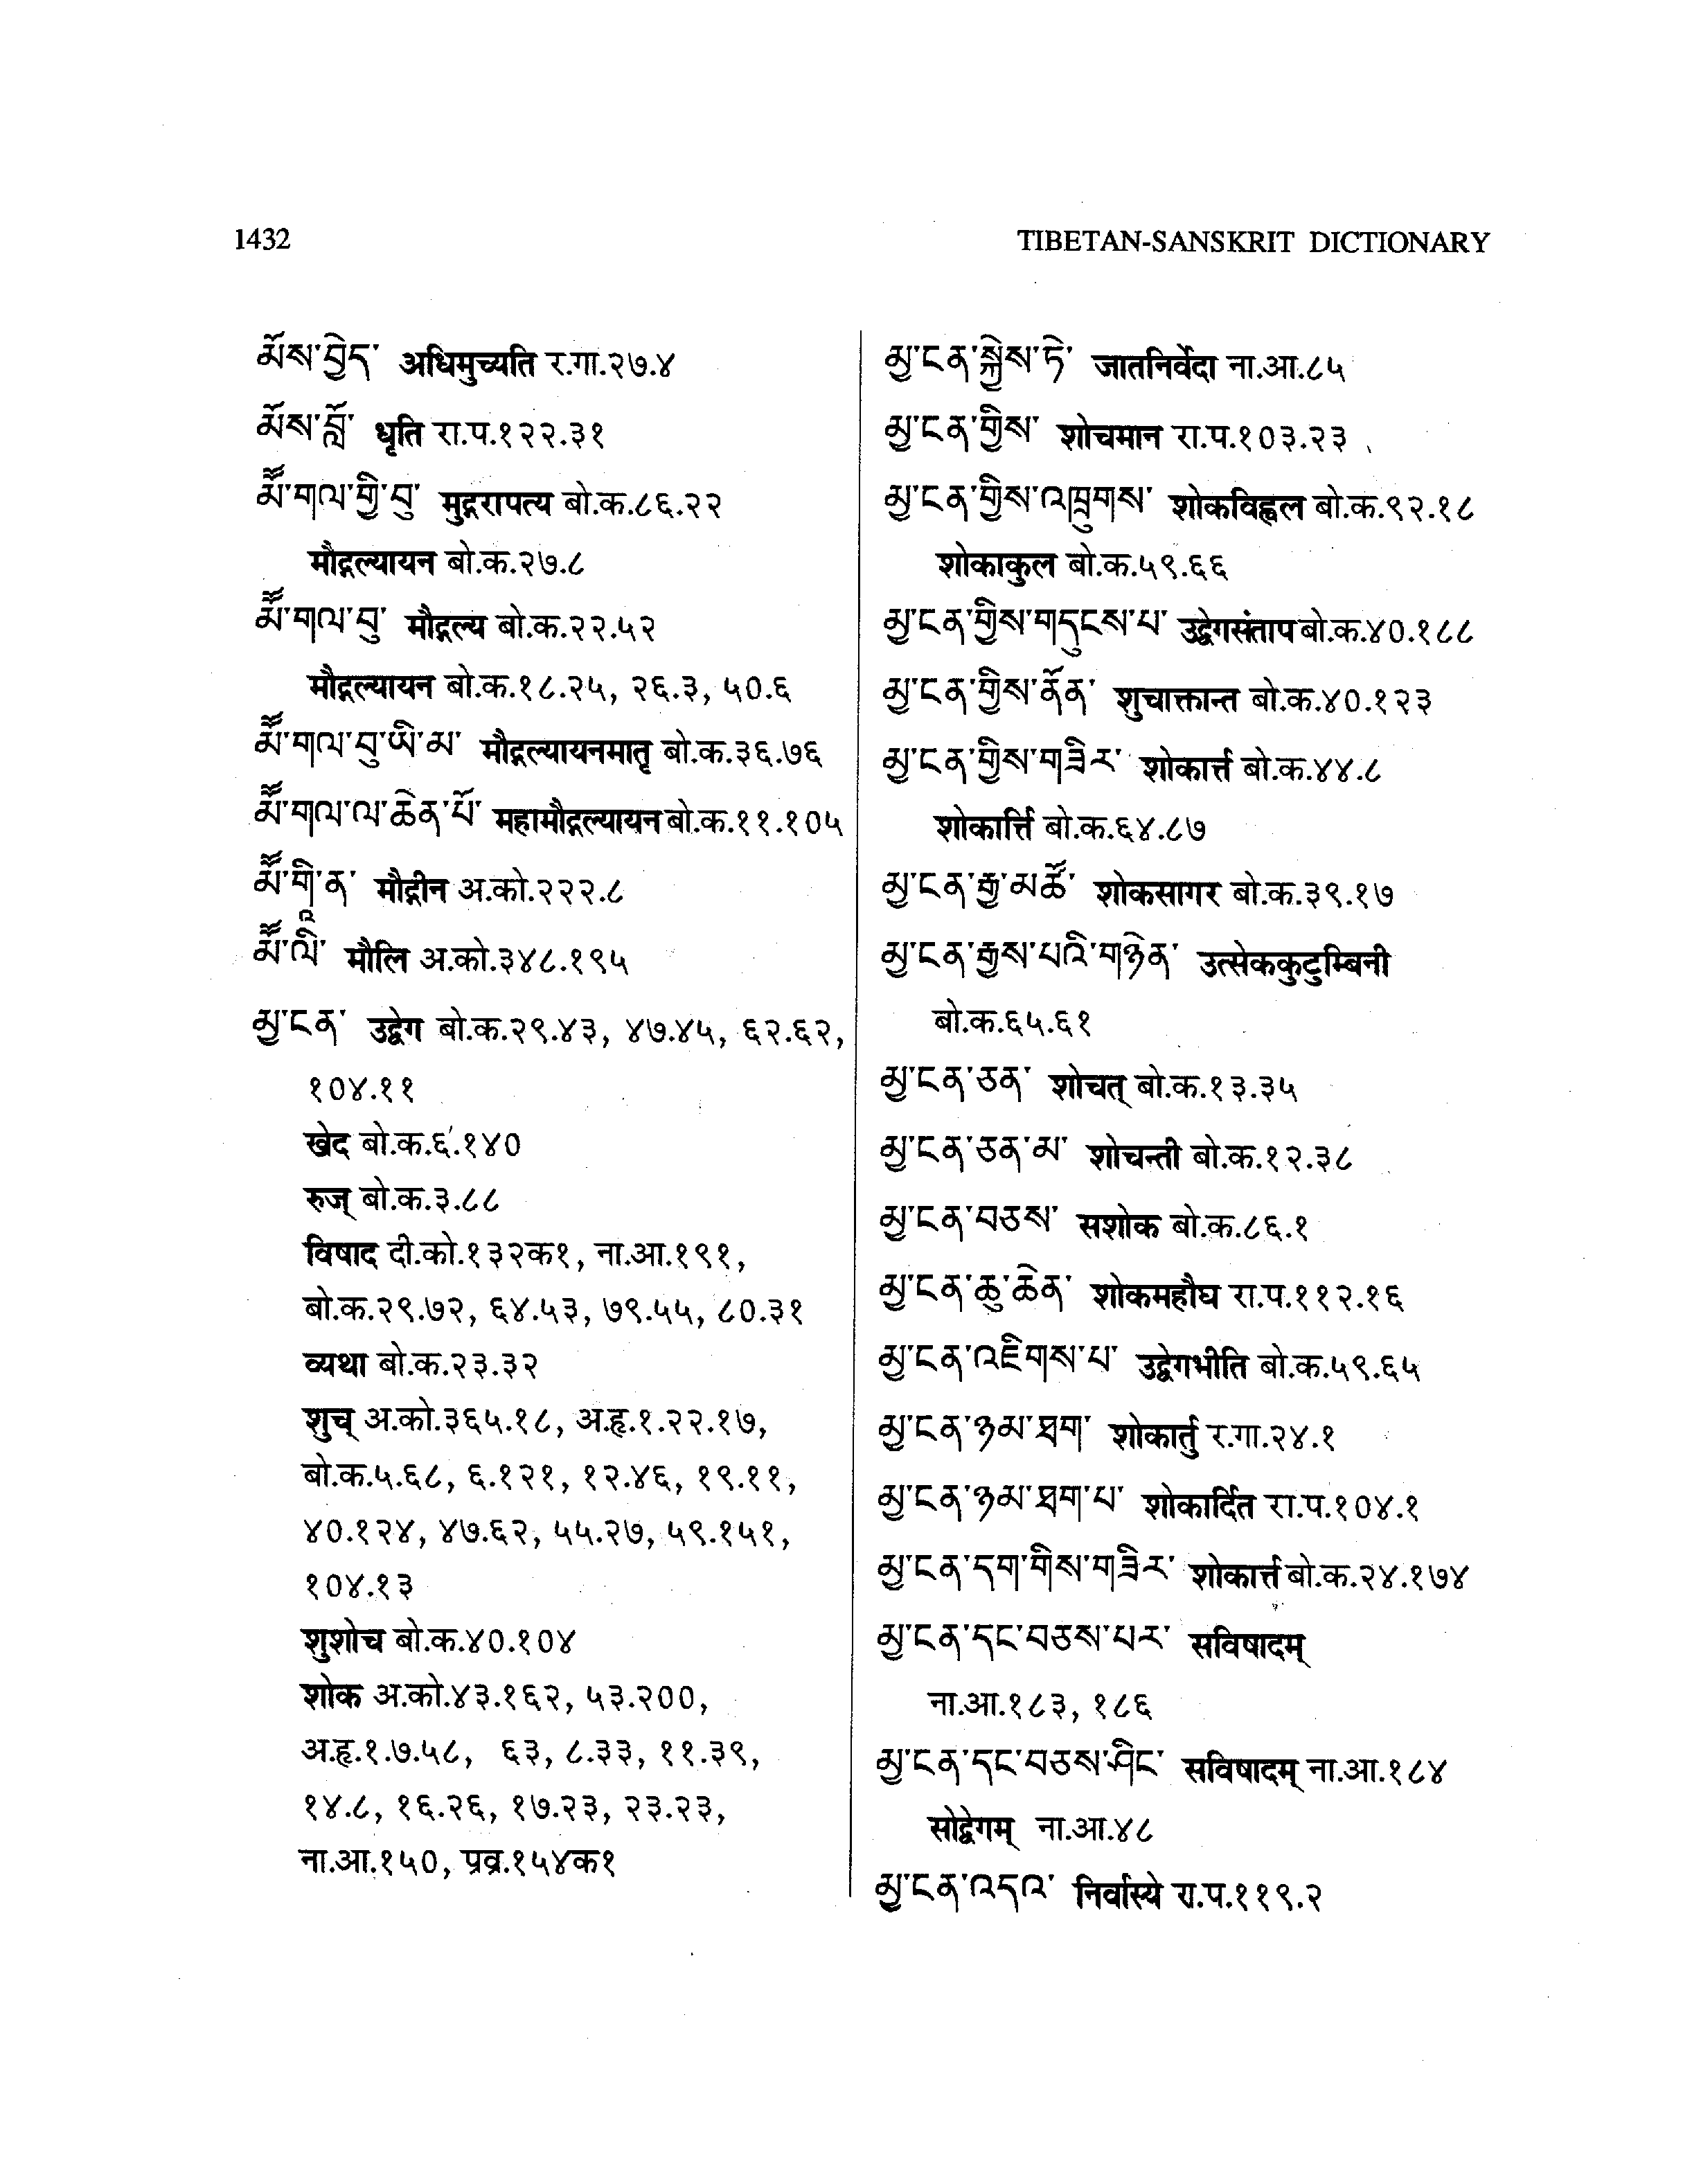 1432
TIBETAN-SANSKRIT DICTIONARY
མོས་བྱེད་ अधिमुच्यति र.गा.२७.४
མོས་བློ་ धृति रा.प.१२२.३१
མཽ་གལ་གྱི་བུ་ मुद्गरापत्य बो.क.८६.२२
मौद्गल्यायन बो.क.२७.८
མཽ་གལ་བུ་ मौद्गल्य बो.क.२२.५२
मौद्गल्यायन बो.क.१८.२५, २६.३, ५०.६
མཽ་གལ་བུ་ཡི་མ་ मौद्गल्यायनमातृ बो.क.३६.७६
མཽ་གལ་ལ་ཆེན་པོ་ महामौद्गल्यायन बो.क.११.१०५
མཽ་གཱི་ན་ मौद्गीन अ.को.२२२.८
མཽ་ལི་ मौलि अ.को.३४८.१९५
མྱ་ངན་ उद्वेग बो.क.२९.४३, ४७.४५, ६२.६२,
१०४.११
खेद बो.क.६.१४०
रुज् बो.क.३.८८
विषाद दी.को.१३२क१, ना.आ.१९१,
बो.क.२९.७२, ६४.५३, ७९.५५, ८०.३१
व्यथा बो.क.२३.३२
शुच् अ.को.३६५.१८, अ.हृ.१.२२.१७,
बो.क.५.६८, ६.१२१, १२.४६, १९.११,
४०.१२४, ४७.६२, ५५.२७, ५९.१५१,
१०४.१३
शुशोच बो.क.४०.१०४
शोक अ.को.४३.१६२, ५३.२००,
अ.हृ.१.७.५८, ६३, ८.३३, ११.३९,
१४.८, १६.२६, १७.२३, २३.२३,
ना.आ.१५०, प्रव्र.१५४क१
མྱ་ངན་སྐྱེས་ཏེ་ जातनिर्वेदा ना.आ.८५
མྱ་ངན་གྱིས་ शोचमान रा.प.१०३.२३
མྱ་ངན་གྱིས་འཁྲུགས་ शोकविह्वल बो.क.९२.१८
शोकाकुल बो.क.५९.६६
མྱ་ངན་གྱིས་གདུངས་པ་ उद्वेगसंताप बो.क.४०.१८८
མྱ་ངན་གྱིས་ནོན་ शुचाक्रान्त बो.क.४०.१२३
མྱ་ངན་གྱིས་གཟིར་ शोकार्त्त बो.क.४४.८
शोकार्त्ति बो.क.६४.८७
མྱ་ངན་རྒྱ་མཚོ་ शोकसागर बो.क.३९.१७
མྱ་ངན་རྒྱས་པའི་གཉེན་ उत्सेककुटुम्बिनी
बो.क.६५.६१
མྱ་ངན་ཅན་ शोचत् बो.क.१३.३५
མྱ་ངན་ཅན་མ་ शोचन्ती बो.क.१२.३८
མྱ་ངན་བཅས་ सशोक बो.क.८६.१
མྱ་ངན་ཆུ་ཆེན་ शोकमहौघ रा.प.११२.१६
མྱ་ངན་འཇིགས་པ་ उद्वेगभीति बो.क.५९.६५
མྱ་ངན་ཉམ་ཐག་ शोकार्तु र.गा.२४.१
མྱ་ངན་ཉམ་ཐག་པ་ शोकार्दित रा.प.१०४.१
མྱ་ངན་དག་གིས་གཟིར་ शोकार्त्त बो.क.२४.१७४
མྱ་ངན་དང་བཅས་པར་ सविषादम्
ना.आ.१८३, १८६
མྱ་ངན་དང་བཅས་ཤིང་ सविषादम् ना.आ.१८४
सोद्वेगम् ना.आ.४८
མྱ་ངན་འདའ་ निर्वास्ये रा.प.११९.२